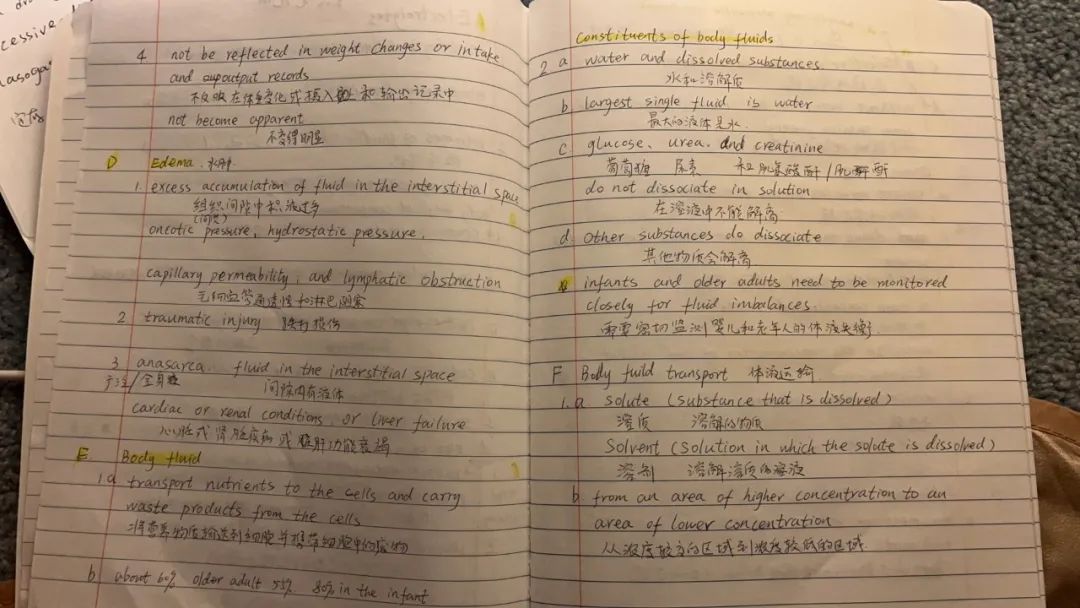 cessive
4 not be reflected in weight changes or intake
and output records
不反映在体重变化或摄入和输出记录中
not become apparent
不变得明显
D Edema、水肿
1. excess accumulation of fluid in the interstitial space
组织间隙中积液过多
(间质)
oncotic pressure, hydrostatic pressure,
capillary permeability, and lymphatic obstruction
毛细血管通透性和淋巴
2 traumatic injury 损伤
3 anasarca. fluid in the interstitial space
/全身 间隙内有液体
cardiac or renal conditions, or liver failure
心脏或肾脏疾病或肝功能衰竭
E Body fluid
1.a transport nutrients to the cells and carry
waste products from the cells
将营养物质输送到细胞并携带细胞中的废物
b about 60% older adult 55% 80% in the infant
Constituents of body fluids
2 a water and dissolved substances.
水和溶解质
b largest single fluid is water
最大的液体是水.
c glucose、urea、and creatinine
葡萄糖 尿素 和肌氨酸酐/肌酐
do not dissociate in solution
在溶液中不能解离
d. Other substances do dissociate
其他物质会解离
infants and older adults need to be monitored
closely for fluid imbalances.
需要密切监测婴儿和老年人的体液失衡
F Body fuild transport 体液运输
1.a solute (substance that is dissolved)
溶质 溶解的物质
Solvent (Solution in which the solute is dissolved)
溶剂 溶解溶质的溶液
b from an area of higher concentration to an
area of lower concentration
从浓度较高的区域到浓度较低的区域.